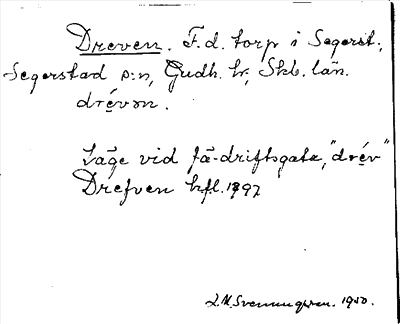 Dreven. F.d. torp i Segerst.,
Segerstad s:n, Gudh. hr, Skb. län.
drévən.
Läge vid fä-driftsgata, "drév"
Drefven hfl. 1897
L.M. Svenungsson. 1950.